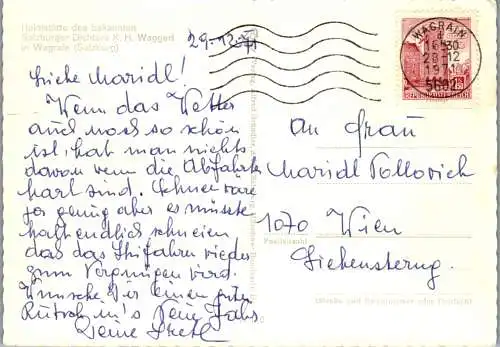 Heimstätte des bekannten
Salzburger Dichters K. H. Waggerl
in Wagrain (Salzburg)
29.12.71
WAGRAIN
16-30
29-12
1971
5602
REPUBLIK ÖSTERREICH
Liebe Maridl!
Wenn das Wetter
auch noch so schön
ist, hat man nichts
davon wenn die Abfahrten
hart sind. Schnee wäre
ja genug aber es müsste
halt endlich schneien
das das Skifahren wieder
zum Vergnügen wird.
Wünsche Dir einen guten
Rutsch in's Neue Jahr
Deine
An Frau
Maridl Pollovich
1070 Wien
Postleitzahl
Siebensterng.
(Straße und Hausnummer oder Postfach)